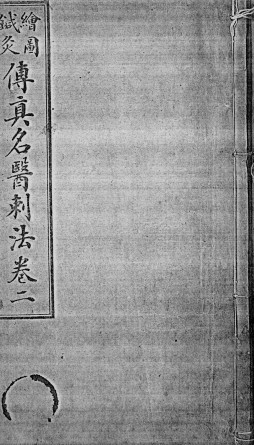 繪圖
鍼灸
傳真名醫刺法卷二